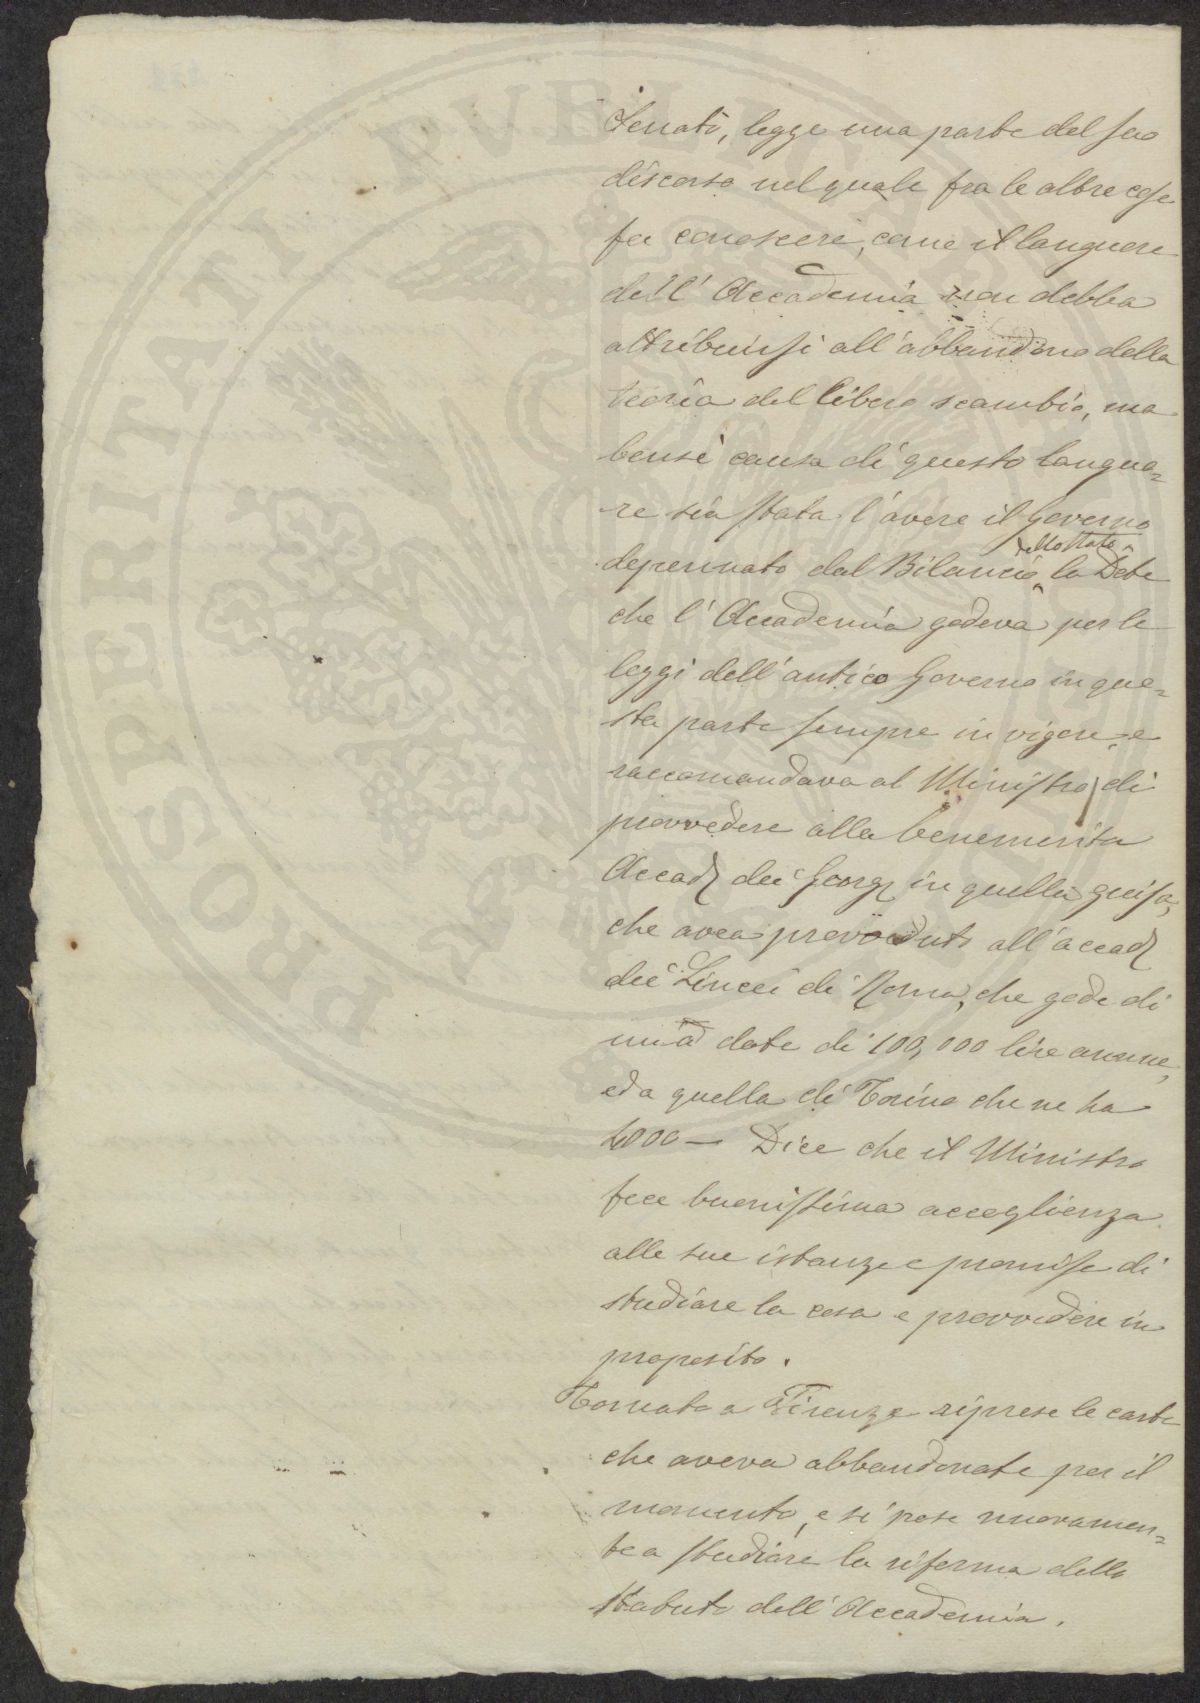 Senato, legge una parte del suo
discorso nel quale fra le altre cose
fa conoscere, come il languore
dell' Accademia non debba
attribuirsi all' abbandono della
teoria del libero scambio, ma
bensì causa di questo languo=
re sia stata l' avere il Governo
depennato dal Bilancio dello Stato la Dote
che l' Accademia godeva per le
leggi dell' antico Governo in que=
sta parte sempre in vigore, e
raccomandava al Ministro di
provvedere alla benemerita
Accad dei Georg in quella guisa,
che avea provveduto all' accad
dei Lincei di Roma, che gode di
una dote di 100,000 lire annue,
ed a quella di Torino che ne ha
— Dice che il Ministro
fece buonissima accoglienza
alle sue istanze e promise di
studiare la cosa e provvedere in
proposito.
Tornato a Firenze riprese le carte
che aveva abbandonate per il
momento, e si pose nuovamen=
te a studiare la riforma dello
Statuto dell' Accademia.
PROSPERITATI PVBLICAE